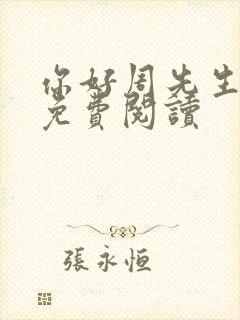 你好周先生
免費閱讀
張永恒